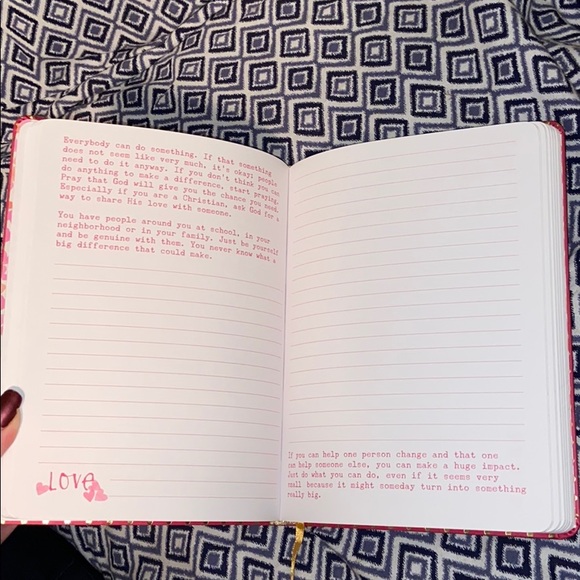 Everybody can do something. If that something
does not seem like very much, it's okay; people
need to do it anyway. If you don't think you can
do anything to make a difference, start praying.
Pray that God will give you the chance you need.
Especially if you are a Christian, ask God for a
way to share His love with someone.
You have people around you at school, in your
neighborhood or in your family. Just be yourself
and be genuine with them. You never know what a
big difference that could make.
LOVE
If you can help one person change and that one
can help someone else, you can make a huge impact.
Just do what you can do, even if it seems very
small because it might someday turn into something
really big.